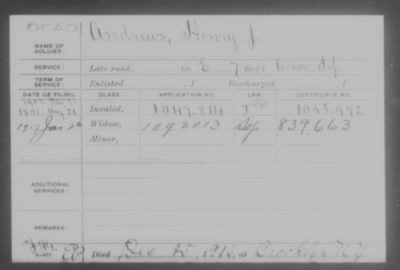 DEAD
Andrews, Henry J.
NAME OF SOLDIER:
SERVICE: Late rank, Co. E, 7 Reg't Conn. Inf.
TERM OF SERVICE: Enlisted , 1 Discharged , 1
DATE OF FILING. CLASS. APPLICATION NO. LAW. CERTIFICATE NO.
1891 Aug 28 Invalid, 1047.814 1.043.992
1917 Jan 26 Widow, 1092013 839.663
Minor,
ADDITIONAL SERVICES:
REMARKS:
Died Dec , 1916, at Brooklyn N.Y.